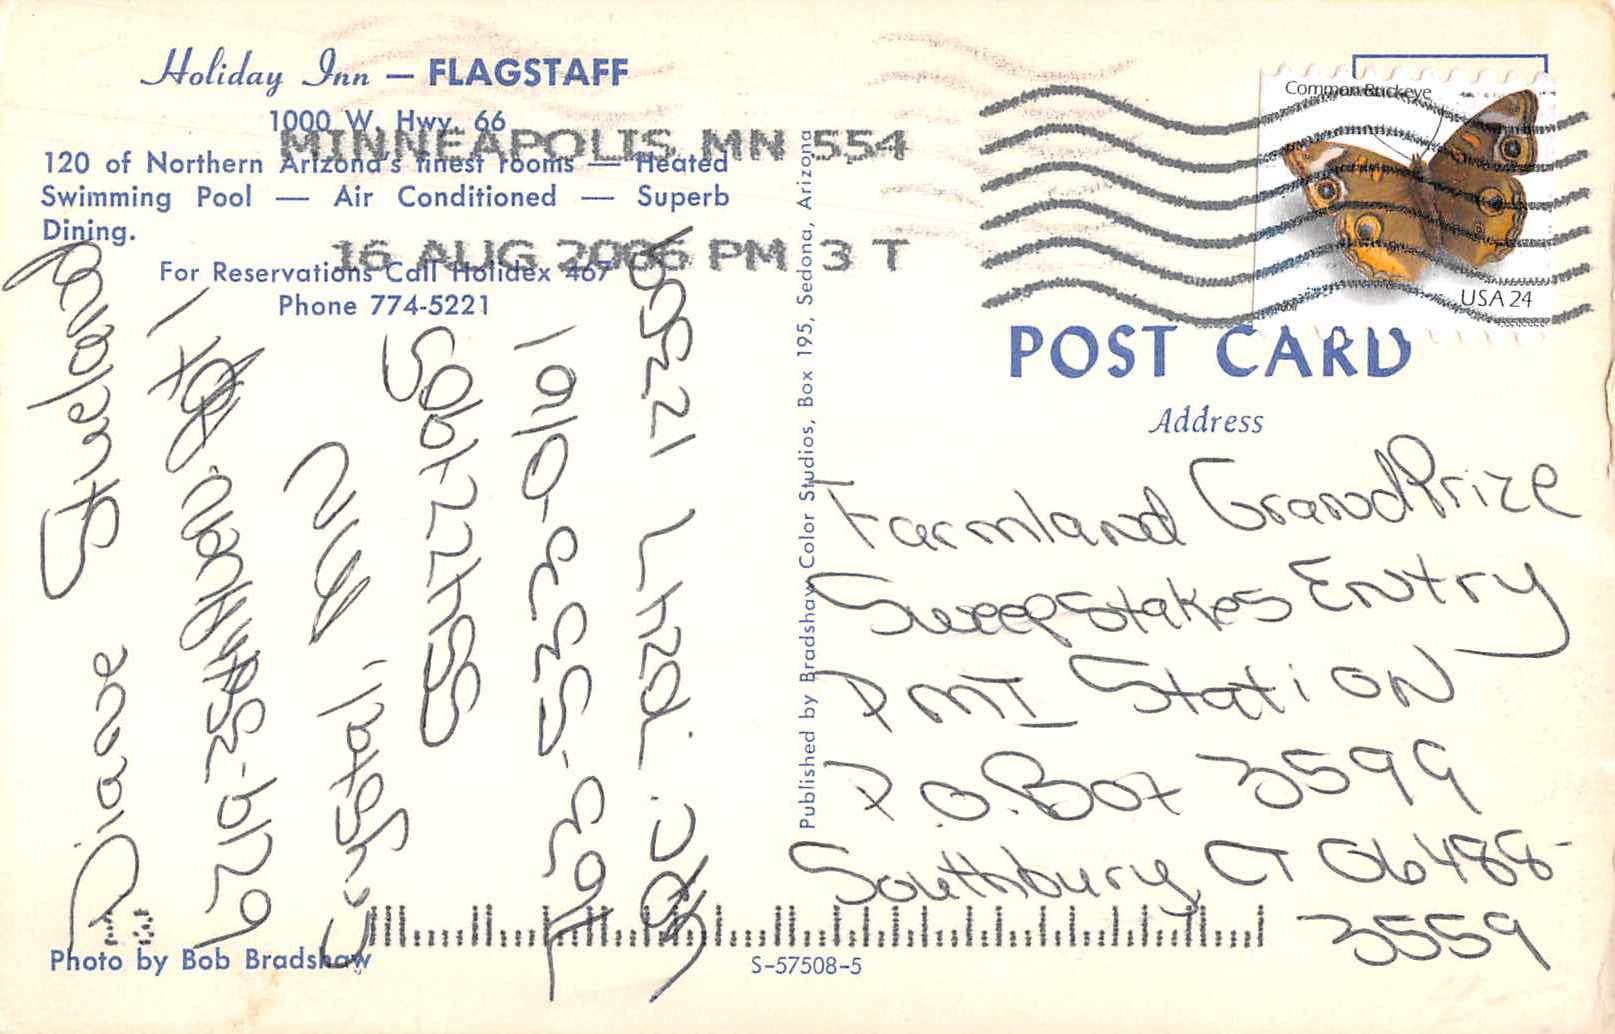 Holiday Inn — FLAGSTAFF
1000 W. Hwy. 66
120 of Northern Arizona's finest rooms — Heated
Swimming Pool — Air Conditioned — Superb
Dining.
For Reservations Call Holidex 467
Phone 774-5221
MINNEAPOLIS MN 554
16 AUG 2006 PM 3 T
Diane
6719-35th
Crystal, MN
55422-1
763-533-0161
Published by Bradshaw Color Studios, Box 195, Sedona, Arizona
Common Buckeye
USA 24
POST CARD
Address
Farmland Grand Prize
Sweepstakes Entry
PMI Station
P.O. Box 3599
Southbury CT 06488-
3559
Photo by Bob Bradshaw
S-57508-5